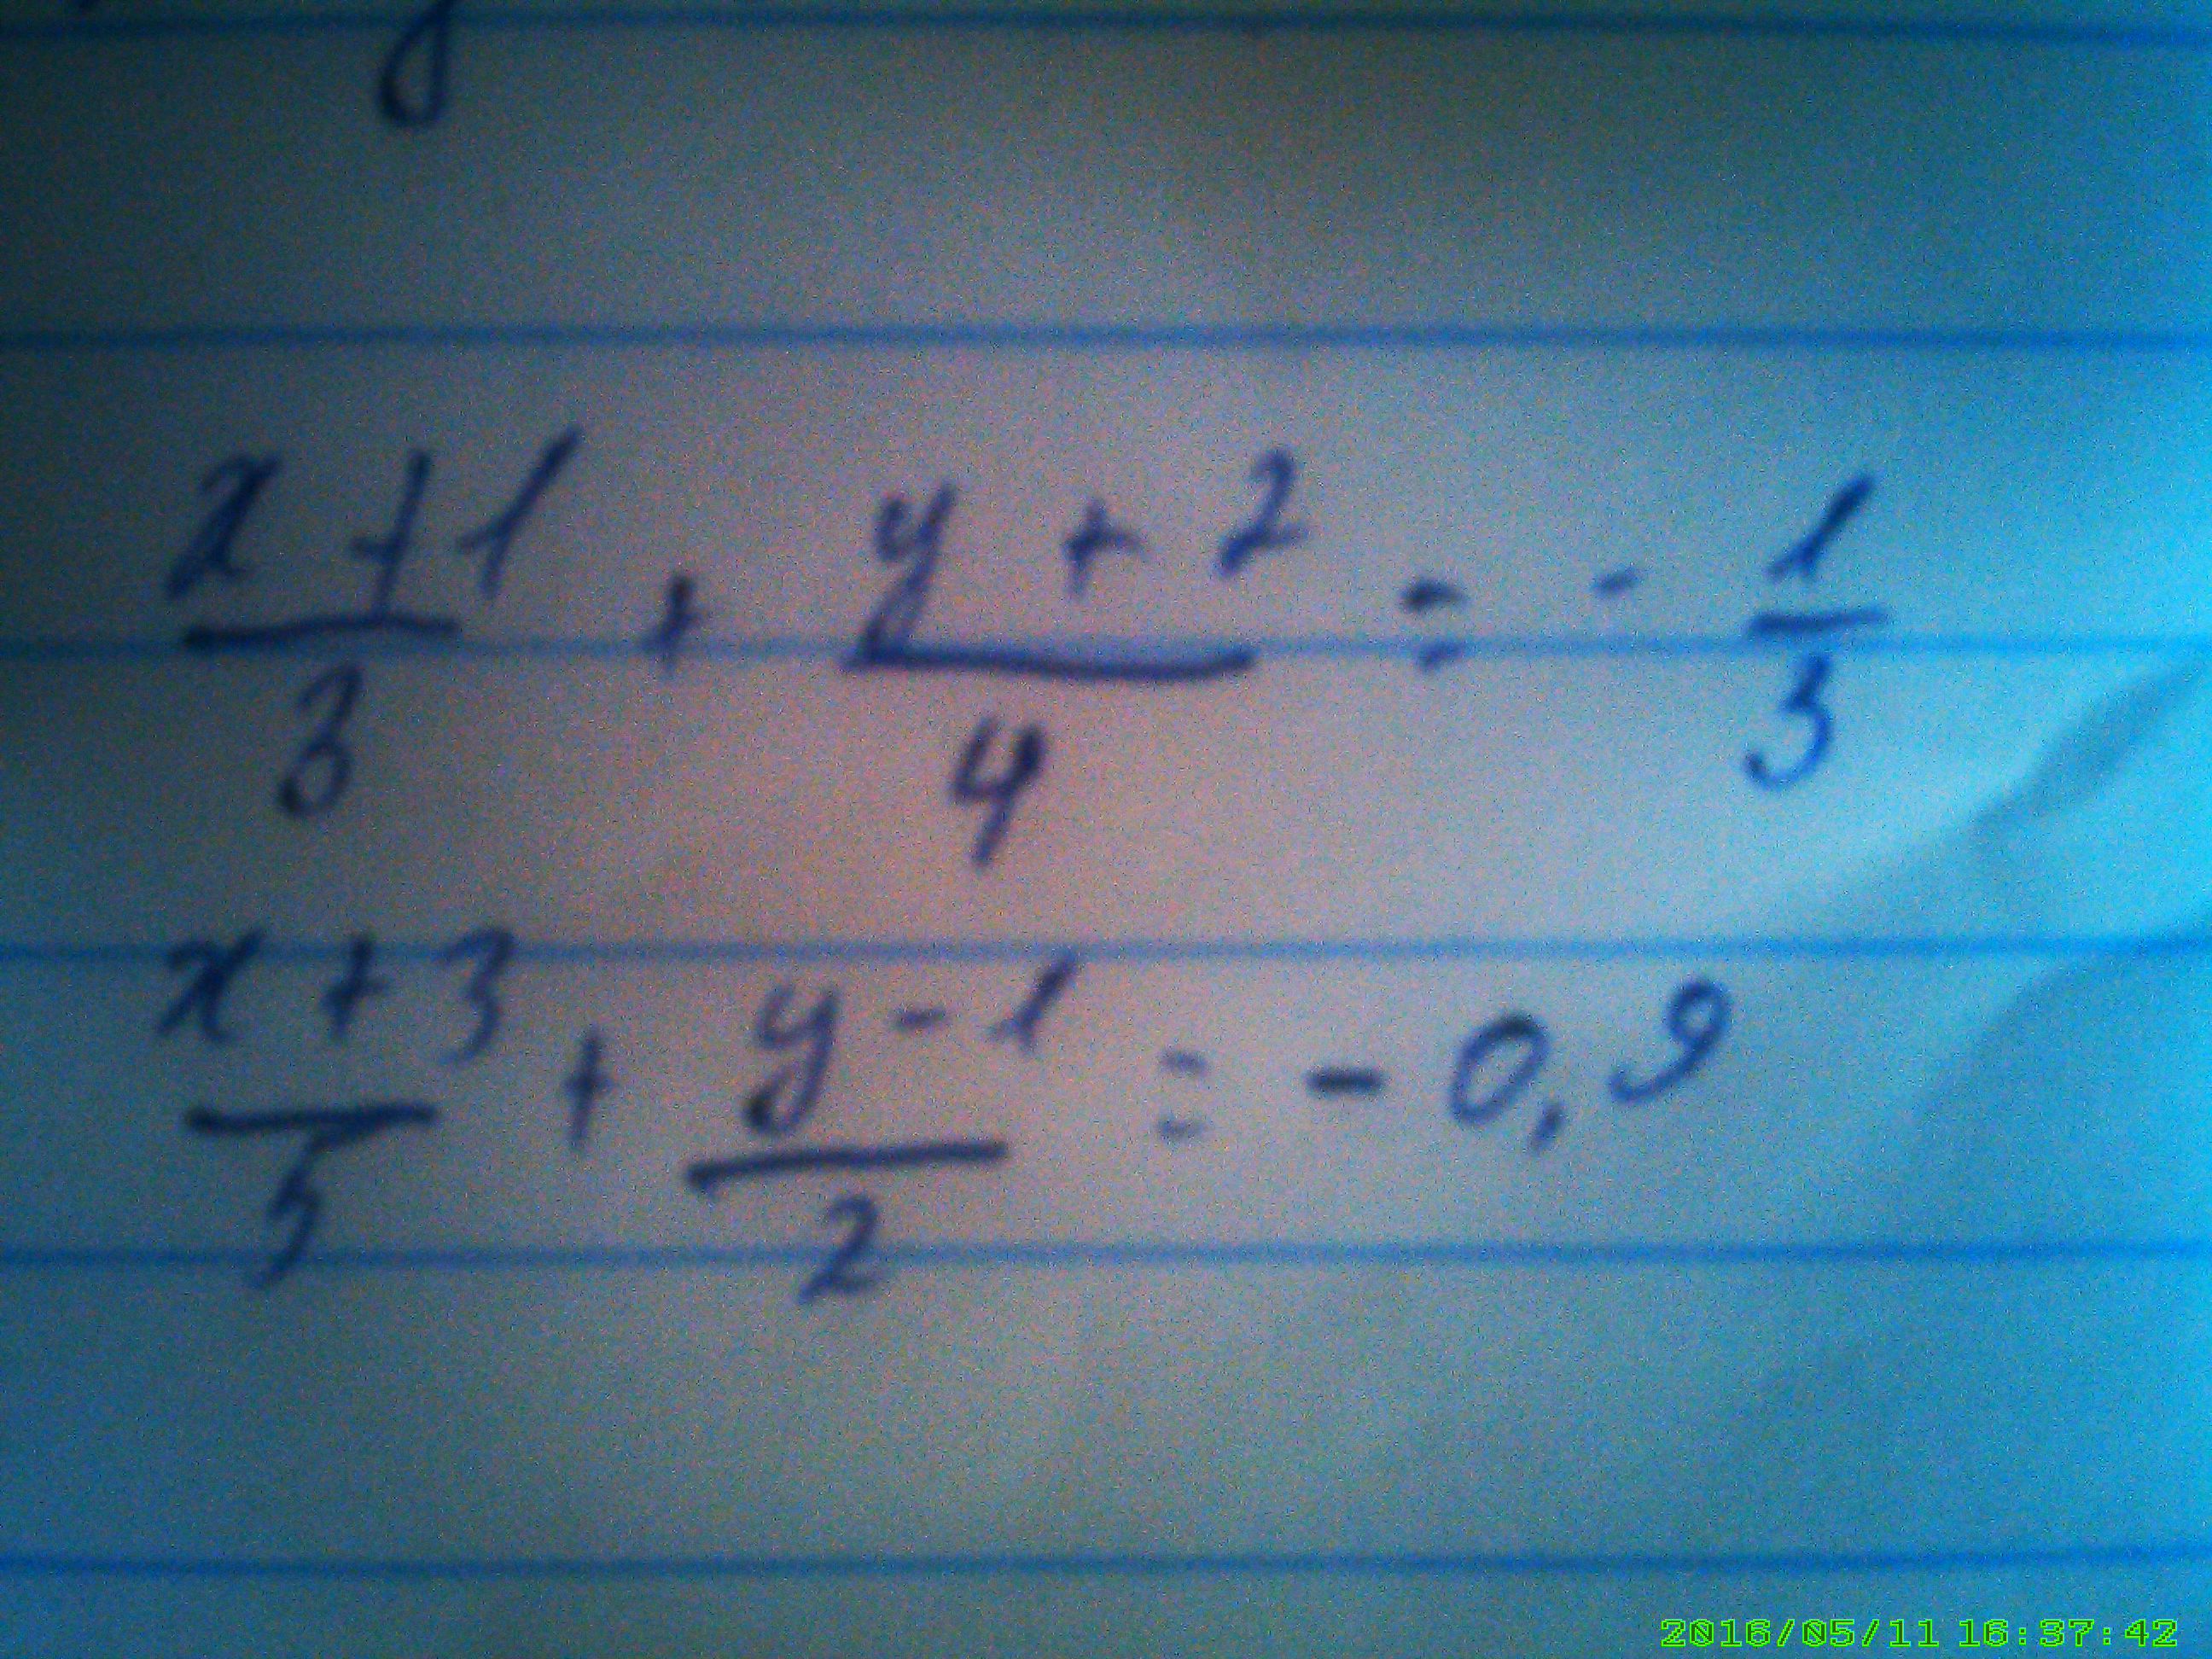 y
x+1/3 + y+2/4 = - 1/3
x+3/5 + y-1/2 = - 0,9
2016/05/11 16:37:42